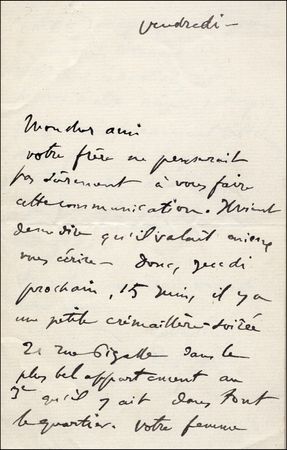 Vendredi –
Mon cher ami
votre frère ne penserait
pas sûrement à vous faire
cette communication. Il vient
de me dire qu'il valait mieux
vous écrire – Donc, jeudi
prochain, 15 juin, il y a
une petite crémaillère-soirée
21 rue Pigalle dans le
plus bel appartement au
3e qu'il y ait dans tout
le quartier. Votre femme